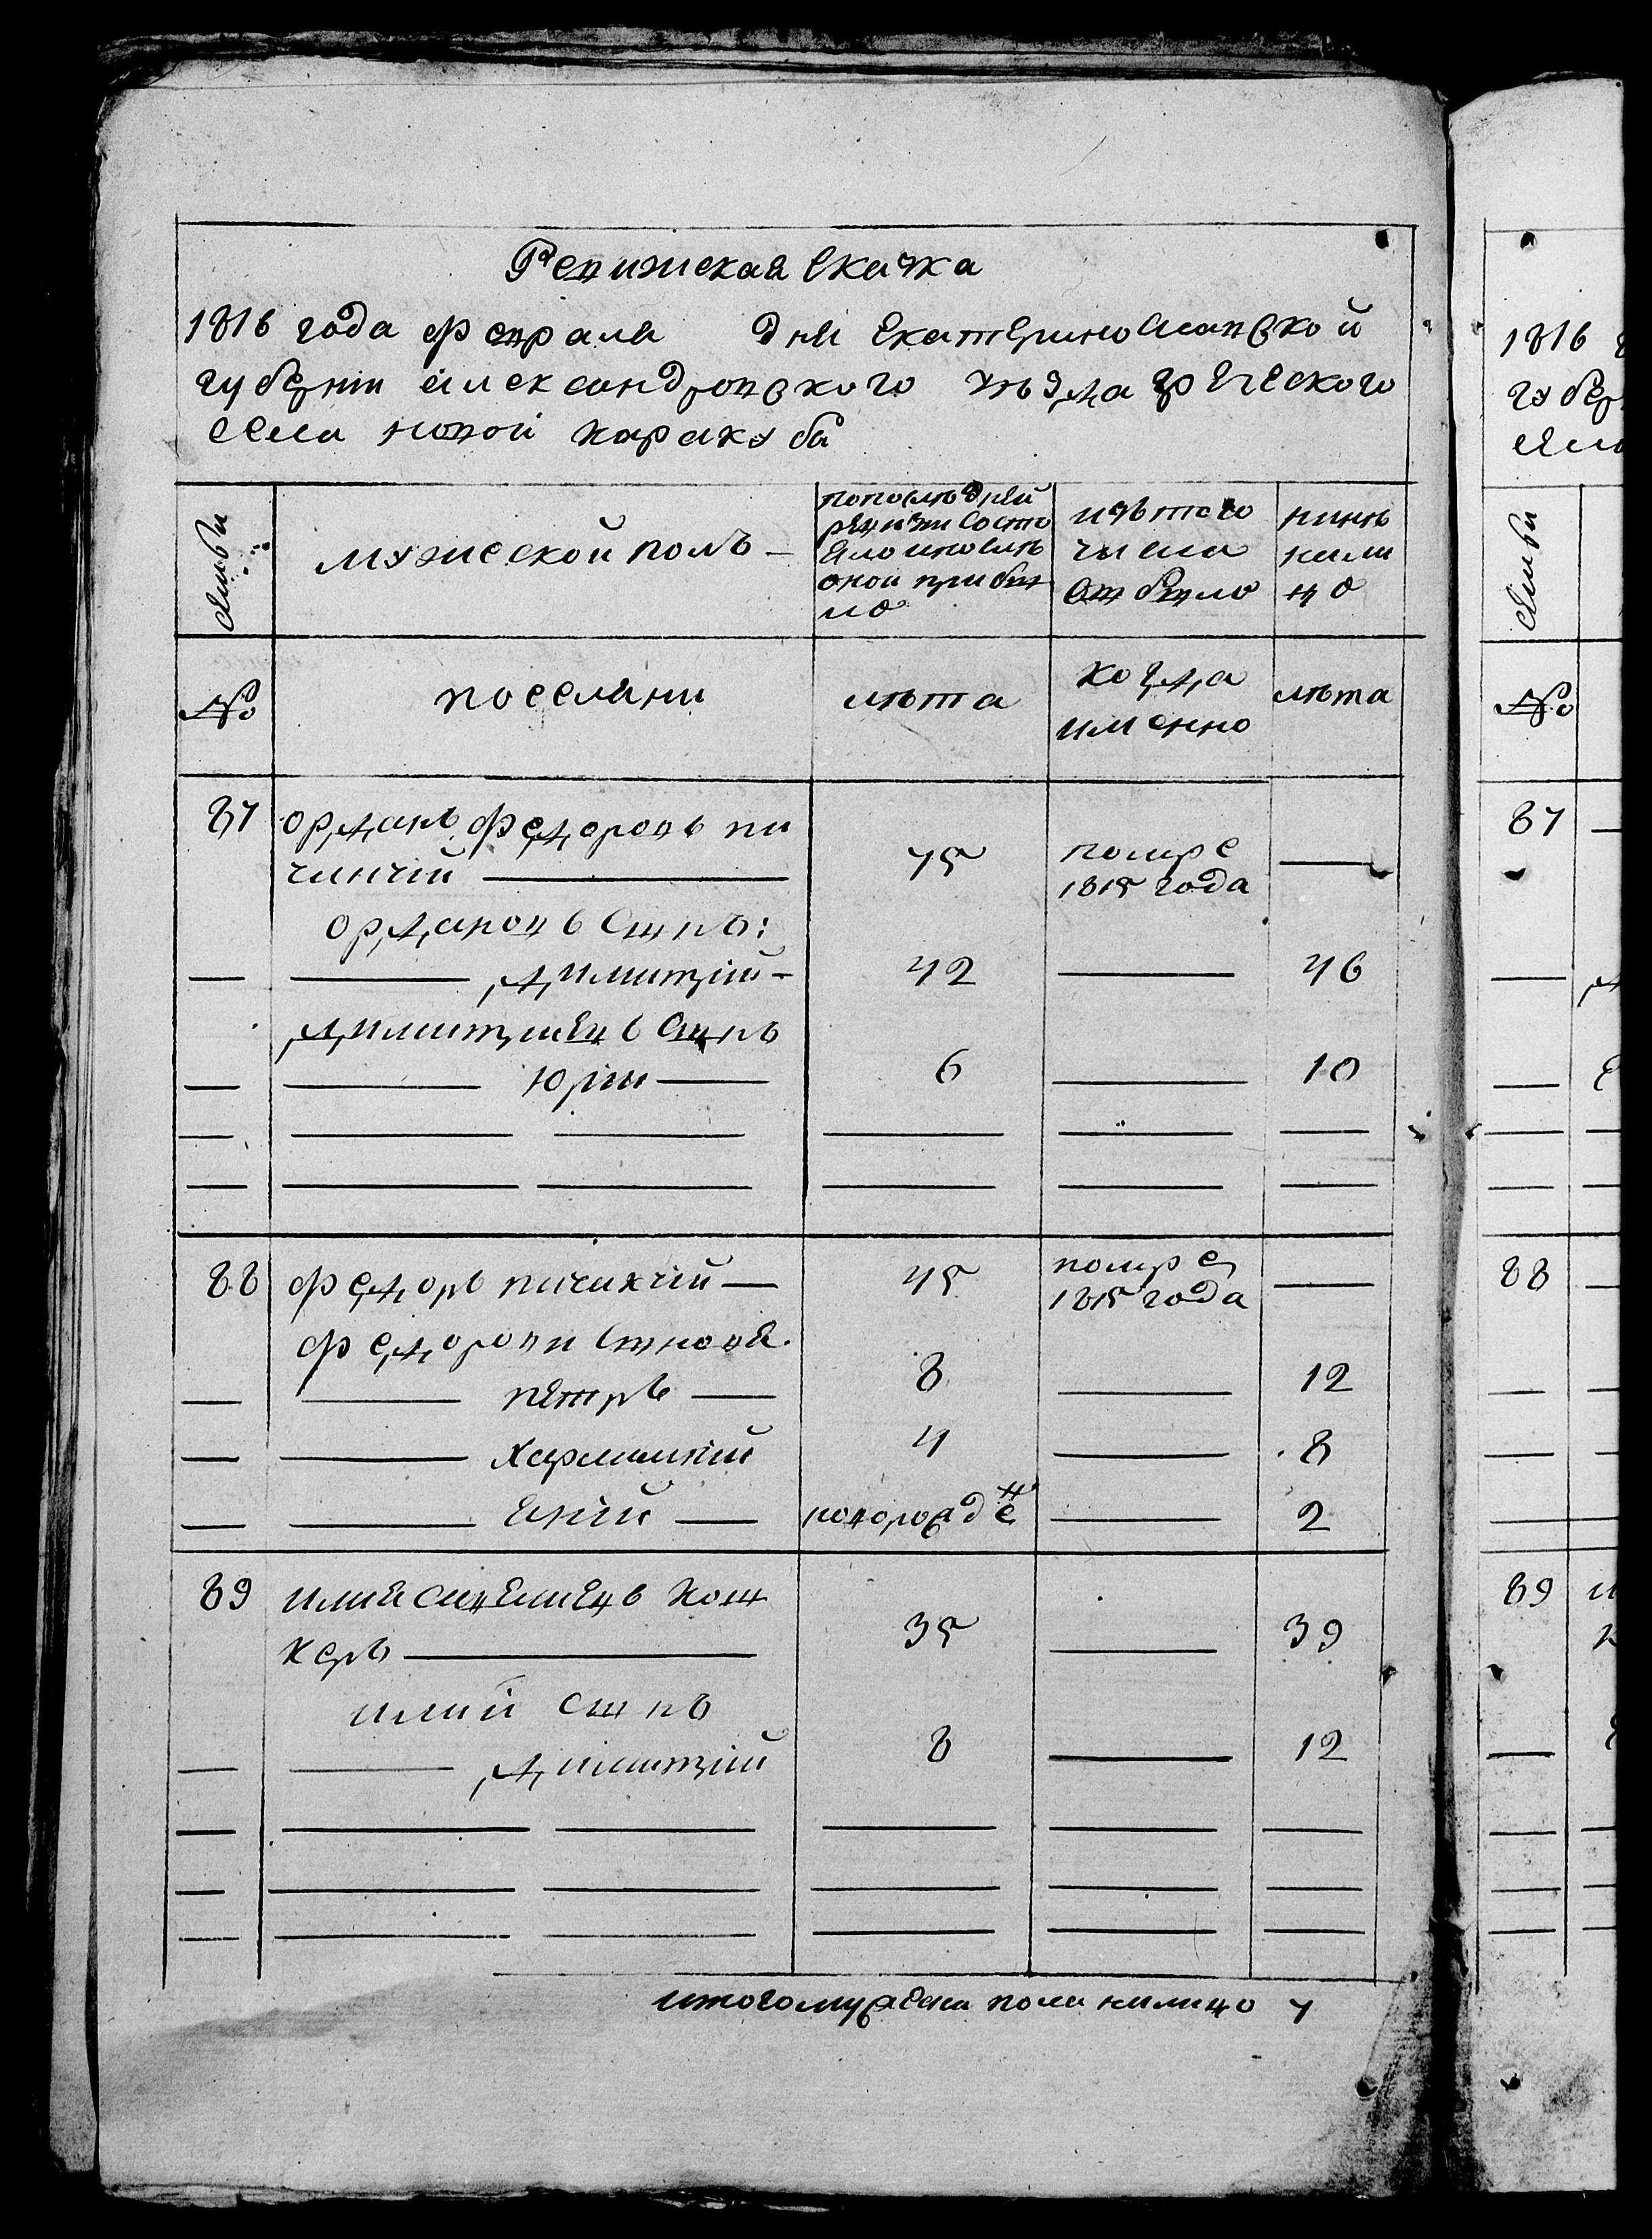 Ревижская скаска
1816 года февраля дня екатеринославской
губернiи александровского уѣзда греческого
села новой каракуба
Семьи
мужеской полъ
попослѣдней
ревизи состо
яло ипослѣ
оной прибы
ло
изъ того
числа
выбыло
нинѣ
нали
цо
№
поселяни
лѣта
когда
именно
лѣта
87 орданъ федоровъ пи
чинчiй 75 помре
1815 года
ордановъ сынъ:
димитрiй 42 46
димитриевъ сынъ
юрiи 6 10
88 федоръ пичикчiй 45 помре
1815 года
федорови сыновя
петръ 8 12
харлампiй 4 8
енiй новорожде 2
89 илия савелиевъ кош
керъ 35 39
илии сынъ
димитрiй 8 12
итого мужеска пола налицо 7
1816
губер
села
Семьи
№
87
88
89